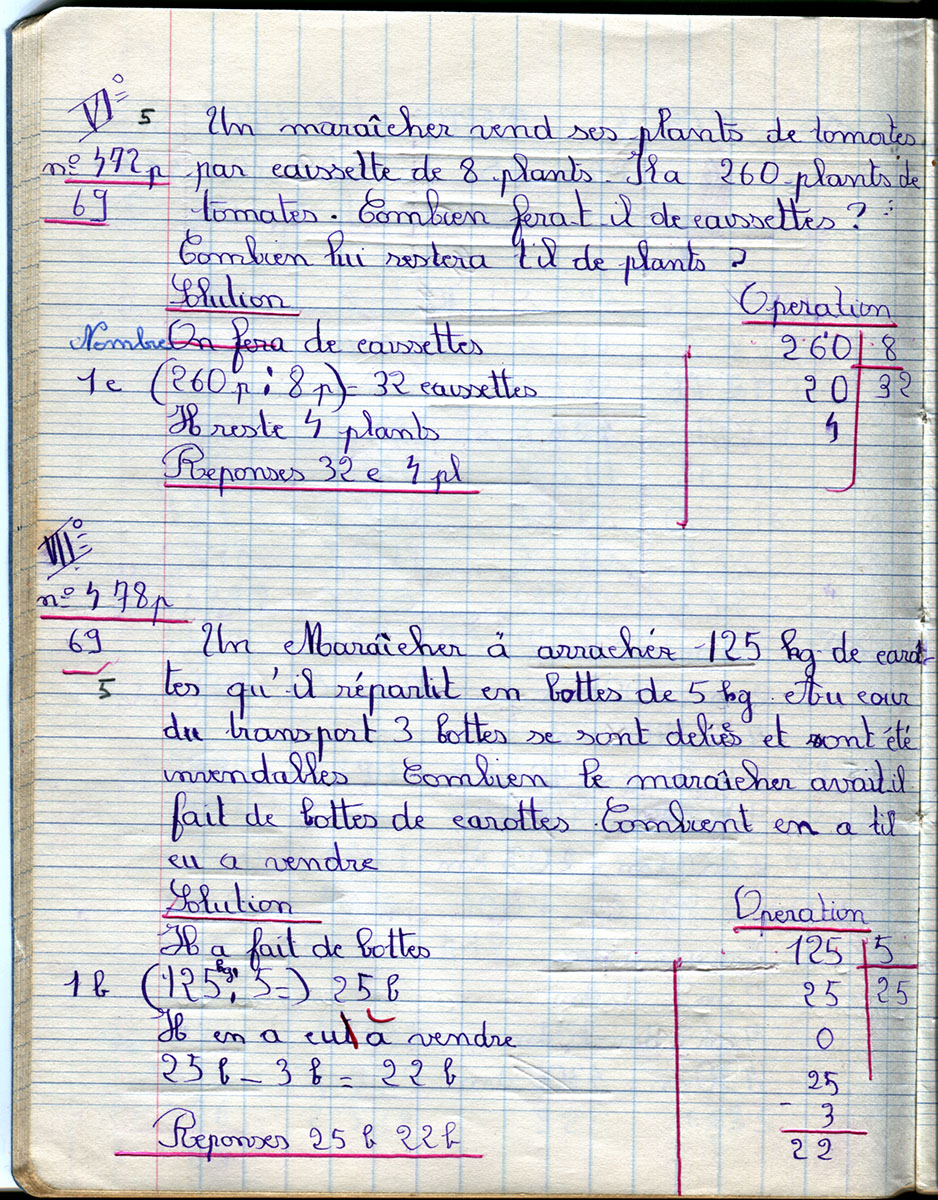 VI°
5 Un maraîcher vend ses plants de tomates
n° 472 p par caissette de 8 plants. Il a 260 plants de
69 tomates. Combien ferat il de caissettes ?
Combien lui restera t'il de plants ?
Solution Operation
Nombre On fera de caissettes 260 8
1c (260 p : 8 p) = 32 caissettes 20 32
Il reste 4 plants 4
Reponses 32 c 4 pl
VII°
n° 478 p
69 Un Maraîcher à arrachér 125 kg de carot-
5 tes qu'il répartit en bottes de 5 kg. Au cour
du transport 3 bottes se sont deliés et ont été
invendables Combien le maraîcher avait il
fait de bottes de carottes. Combient en a til
eu a vendre
Solution Operation
Il a fait de bottes 125 5
1 b (125 kg : 5 =) 25 b 25 25
Il en a eut à vendre 0
25 b - 3 b = 22 b 25
- 3
Reponses 25 b 22 b 22